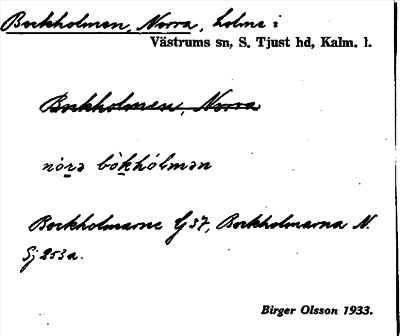 Bockholmen, Norra, holme i
Västrums sn, S. Tjust hd, Kalm. l.
Bockholmen, Norra
nòrə bòkhólmən
Bockholmarne G 37, Bockholmarna N.
Sj 253a.
Birger Olsson 1933.